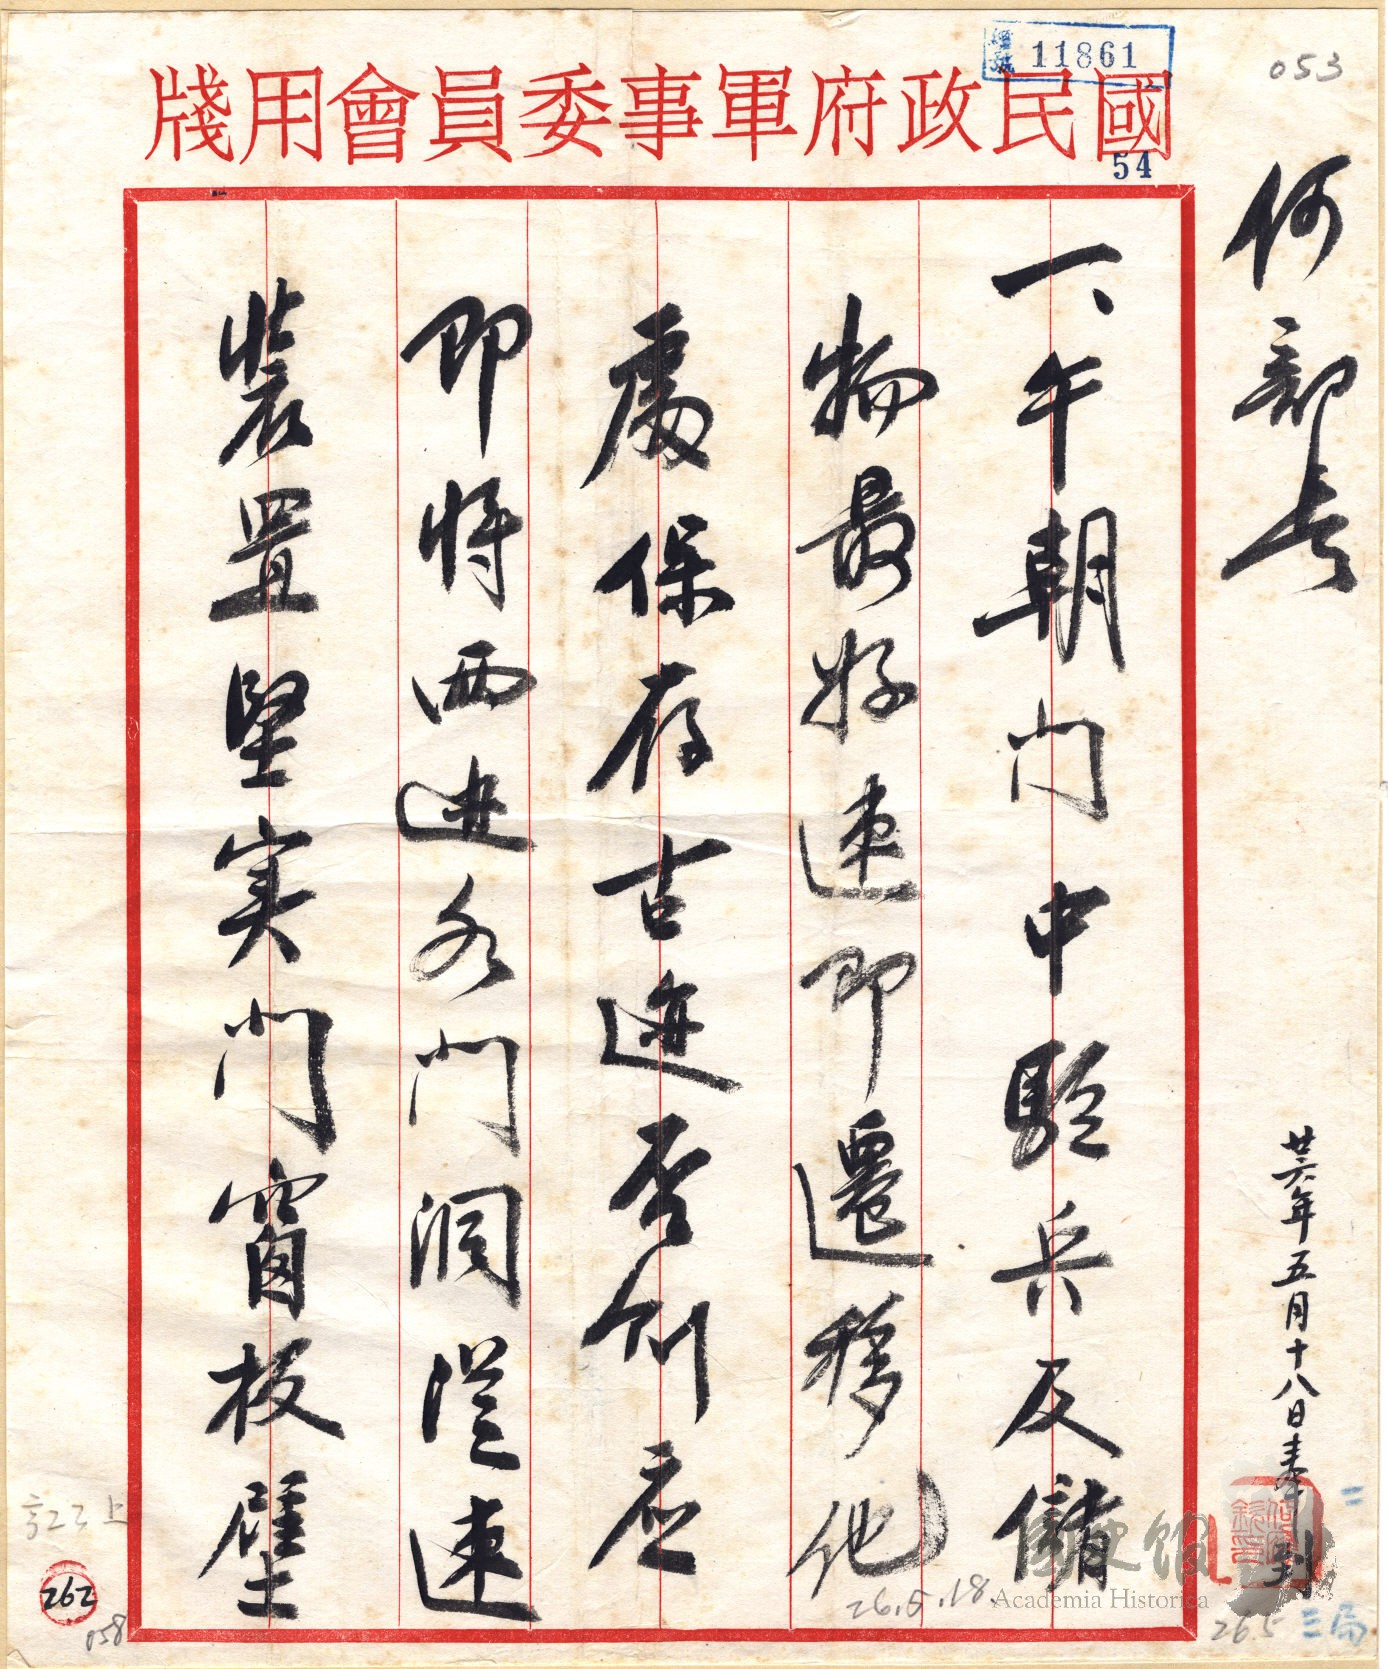 053
11861
國民政府軍事委員會用牋
54
何部長
廿六年五月十八日奉到
一、午朝門中駐兵及儲
物最好速即遷移他
處保存古迹否則應
即將各門洞從速
裝置堅實門窗板壁
26.5.18.
國史館
Academia Historica
二
26.5
三局
262
058